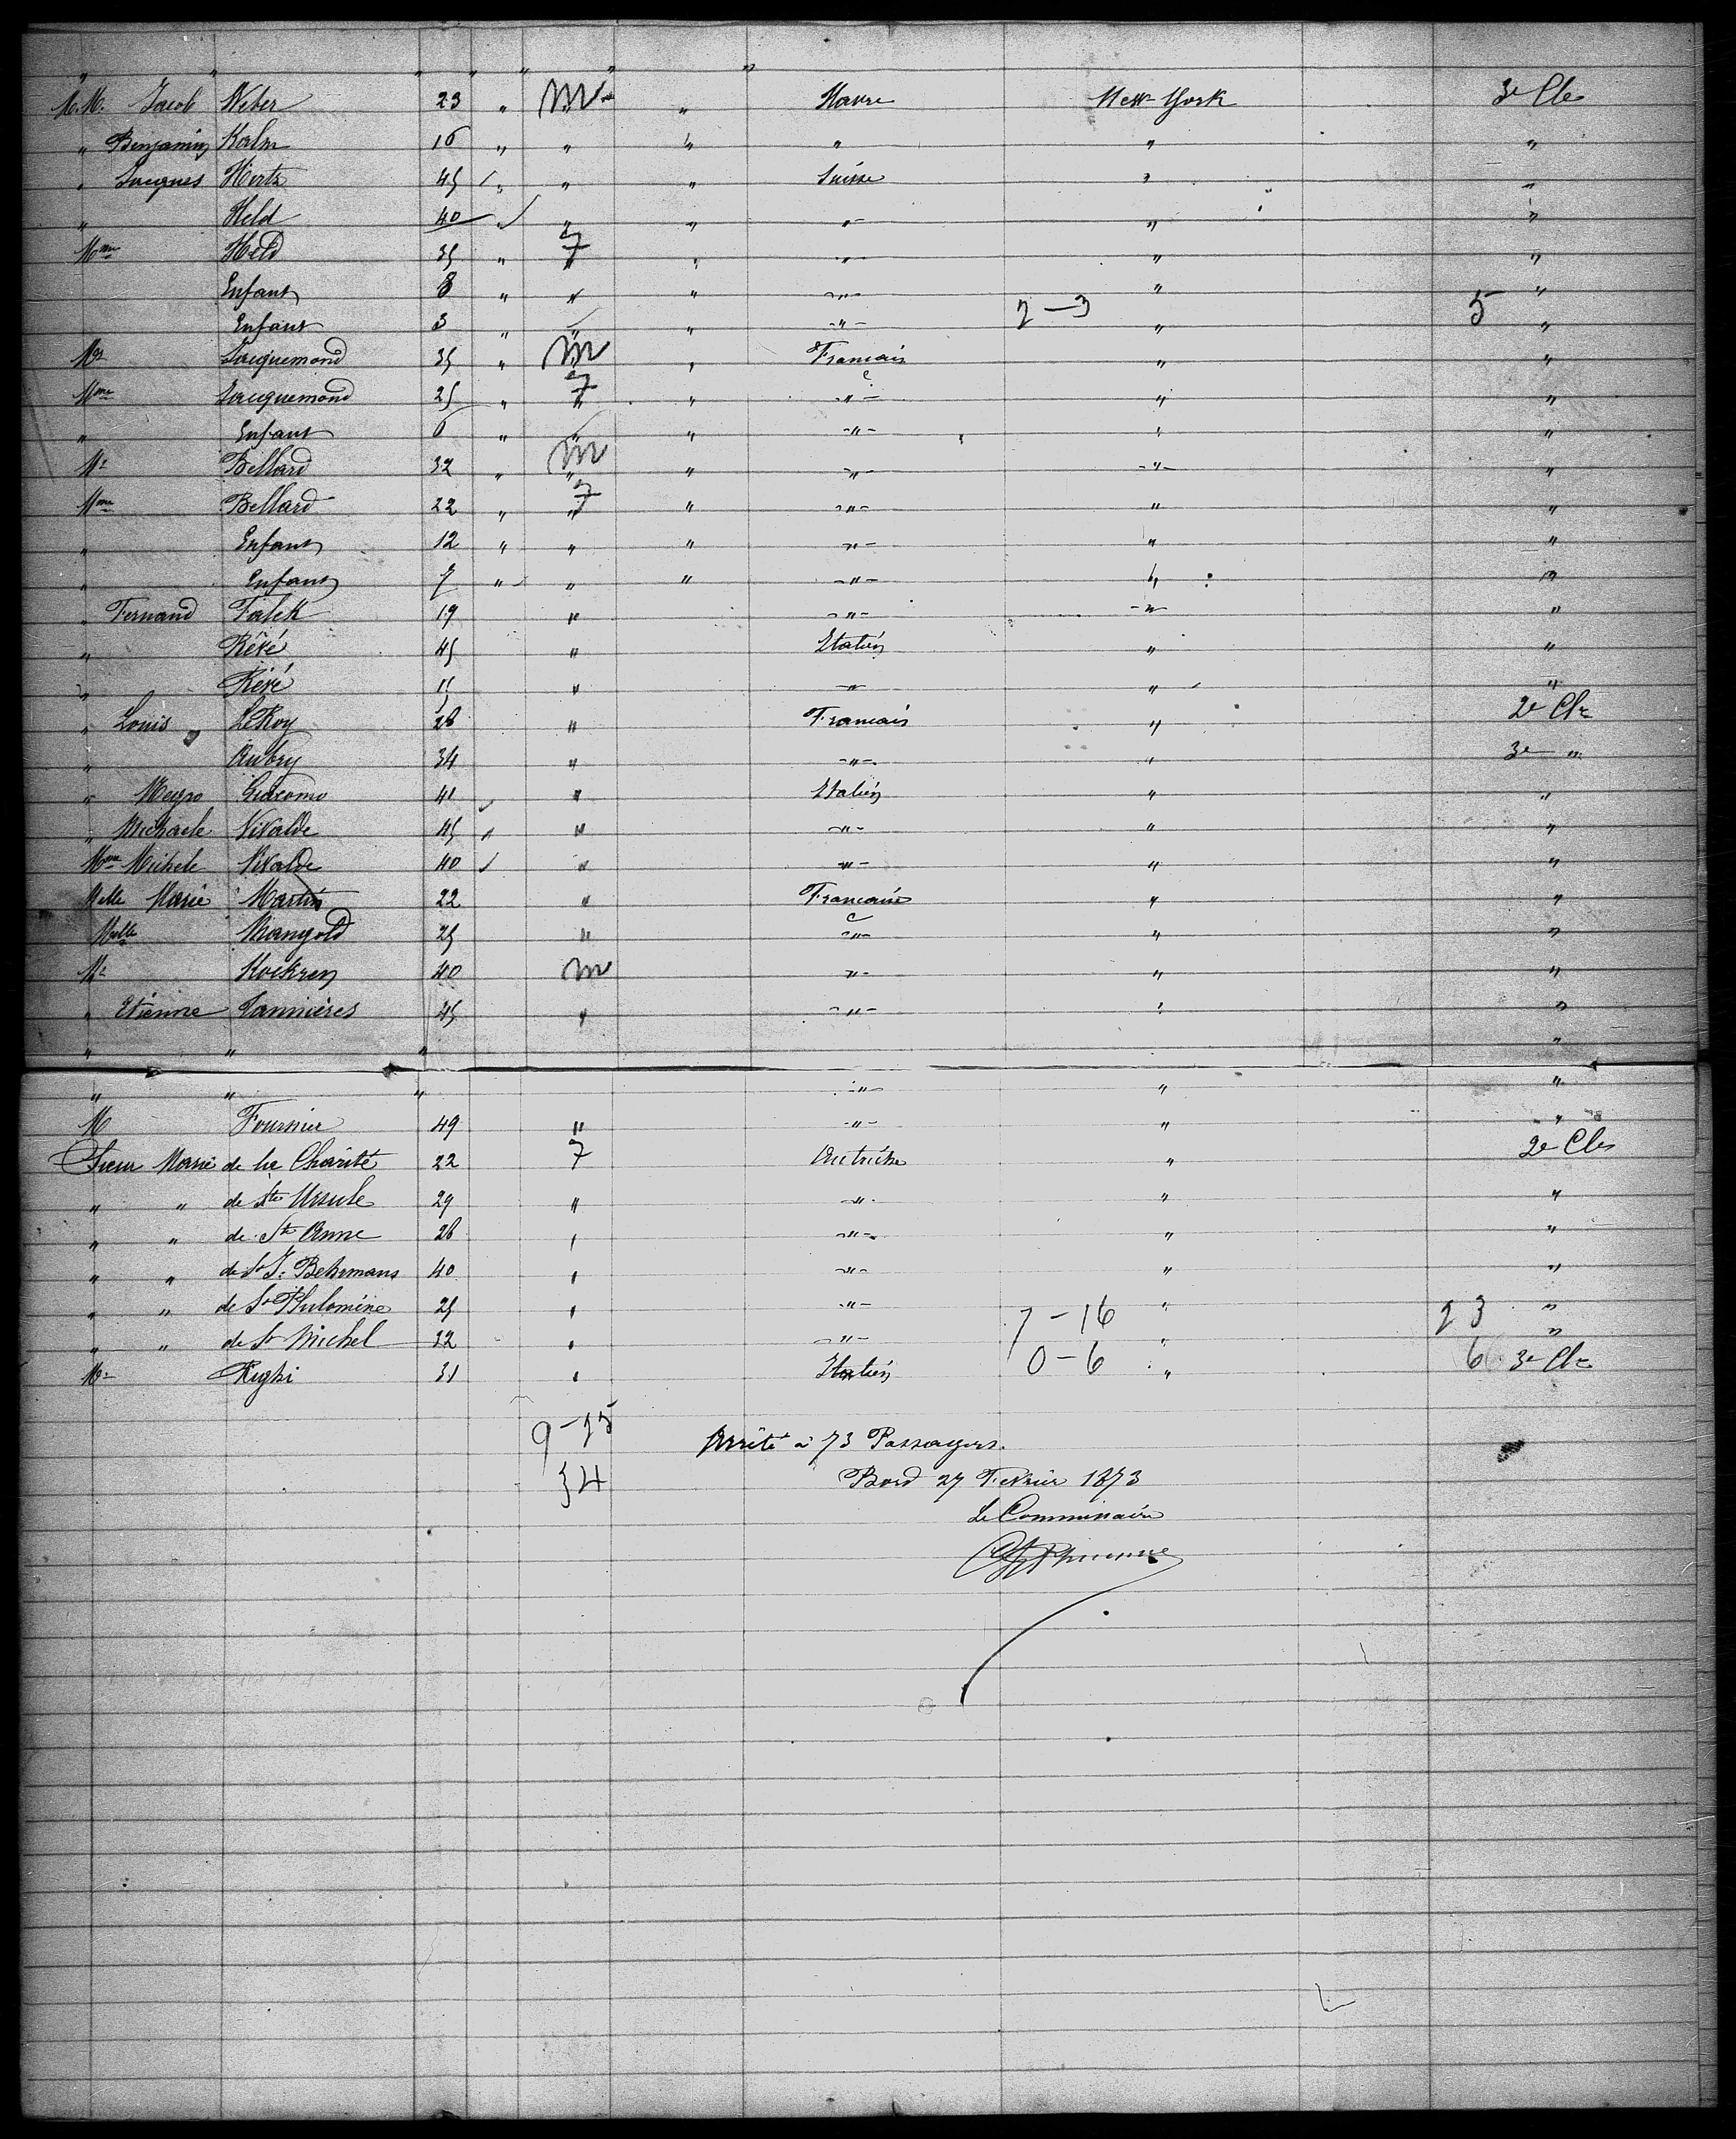 " " " " " " "
M.M. Jacob Weber 23 " M " Havre New-York 3e Cle
" Benjamin Kalm 16 " " " " " "
" Jacques Hertz 45 " " " Suisse " "
" Held 40 " " " " " "
Mme Held 35 " F " " " "
Enfant 8 " " " " " "
Enfant 3 " " " " 2-3 " 5 "
Mr Jacquemond 35 " M " Français " "
Mme Jacquemond 25 " F " " " "
" Enfant 6 " " " " " "
Mr Bellard 32 " M " " " "
Mme Bellard 22 " F " " " "
" Enfant 12 " " " " " "
" Enfant 7 " " " " " "
" Fernand Falck 19 " " " "
" Révé 45 " Italien " "
" Révé 11 " " " "
" Louis LeRoy 28 " Français " 2e Cle
" Aubry 34 " " " 3e "
" Meyro Giacomo 41 " Italien " "
" Michaele Vivalde 45 " " " "
Mme Michele Vivalde 40 " " " "
Melle Marie Martin 22 " Française " "
Melle Mangold 25 " " " "
Mr Kockren 40 M " " "
" Etienne Vannières 45 " " " "
" " " "
" " " " " "
M Fournier 49 " " " "
Sœur Marie de la Charité 22 F Autriche " 2e Cle
" " de Ste Ursule 29 " " " "
" " de Ste Anne 28 " " " "
" " de St J. Behrmans 40 " " " "
" " de Ste Philomène 25 " " 7-16 " 23 "
" " de St Michel 32 " " " "
Mr Righi 31 " Italien 0-6 " 6 3e Cle
9-25
34
Arrêté à 73 Passagers.
Bord 27 Février 1873
Le Commissaire